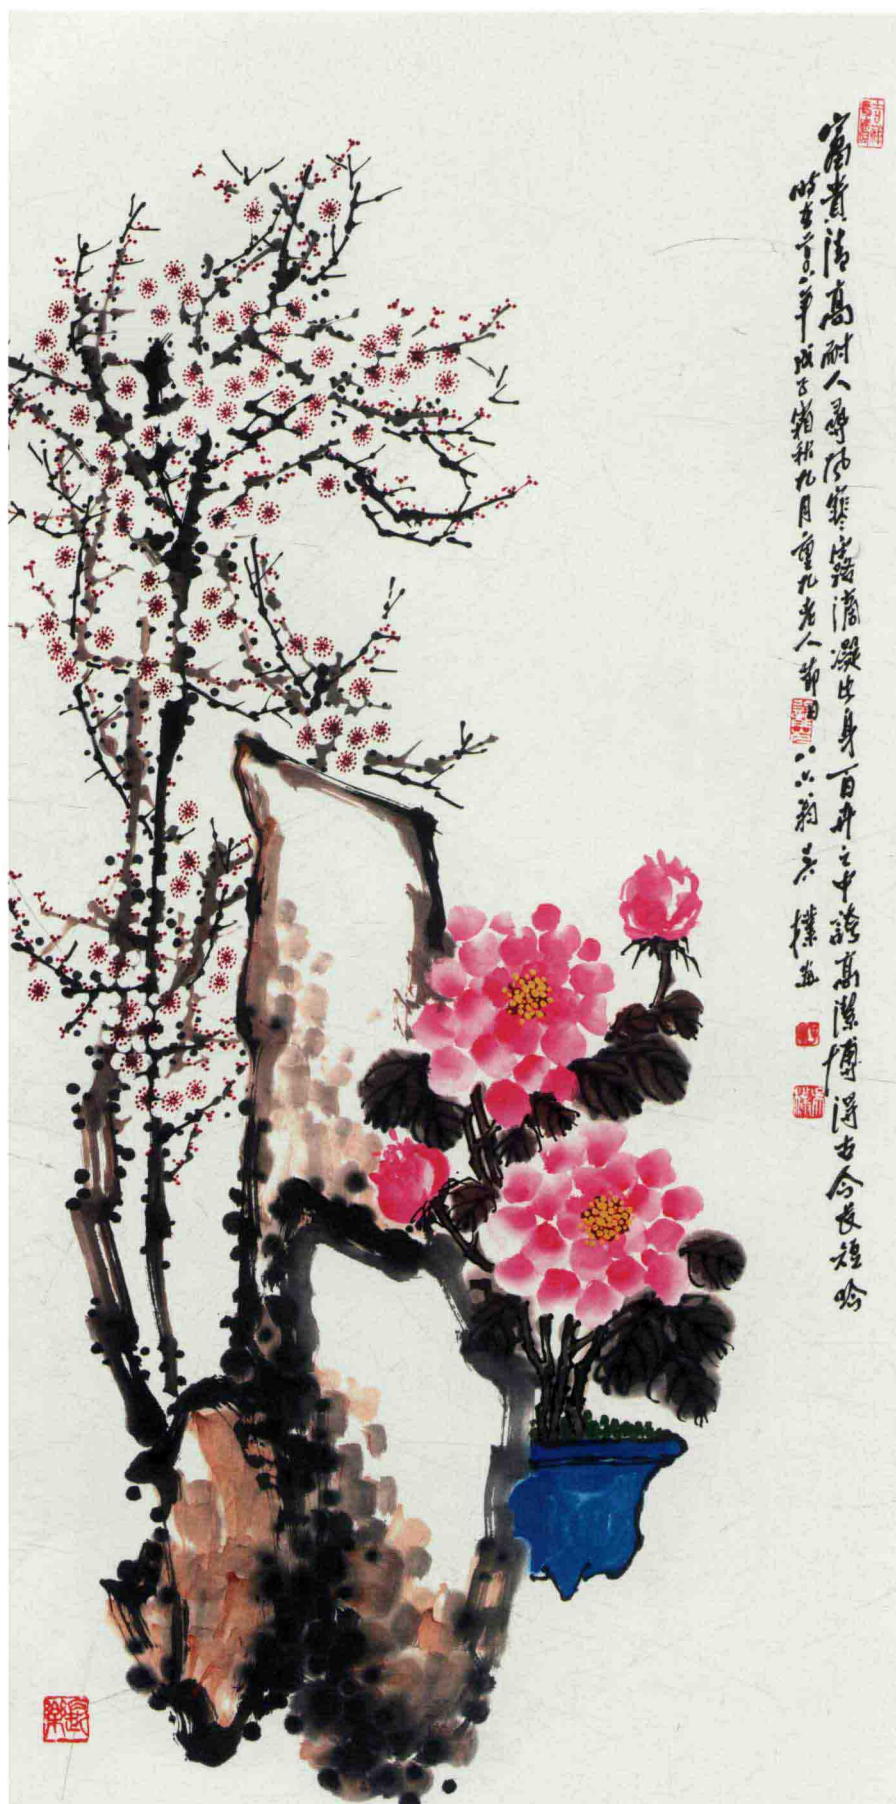 富贵清高耐人寻风寒露滴凝此身百卉之中誇高潔博得古今長短吟
时在〇八年戊子菊秋九月重九老人节日八六翁吴樸画